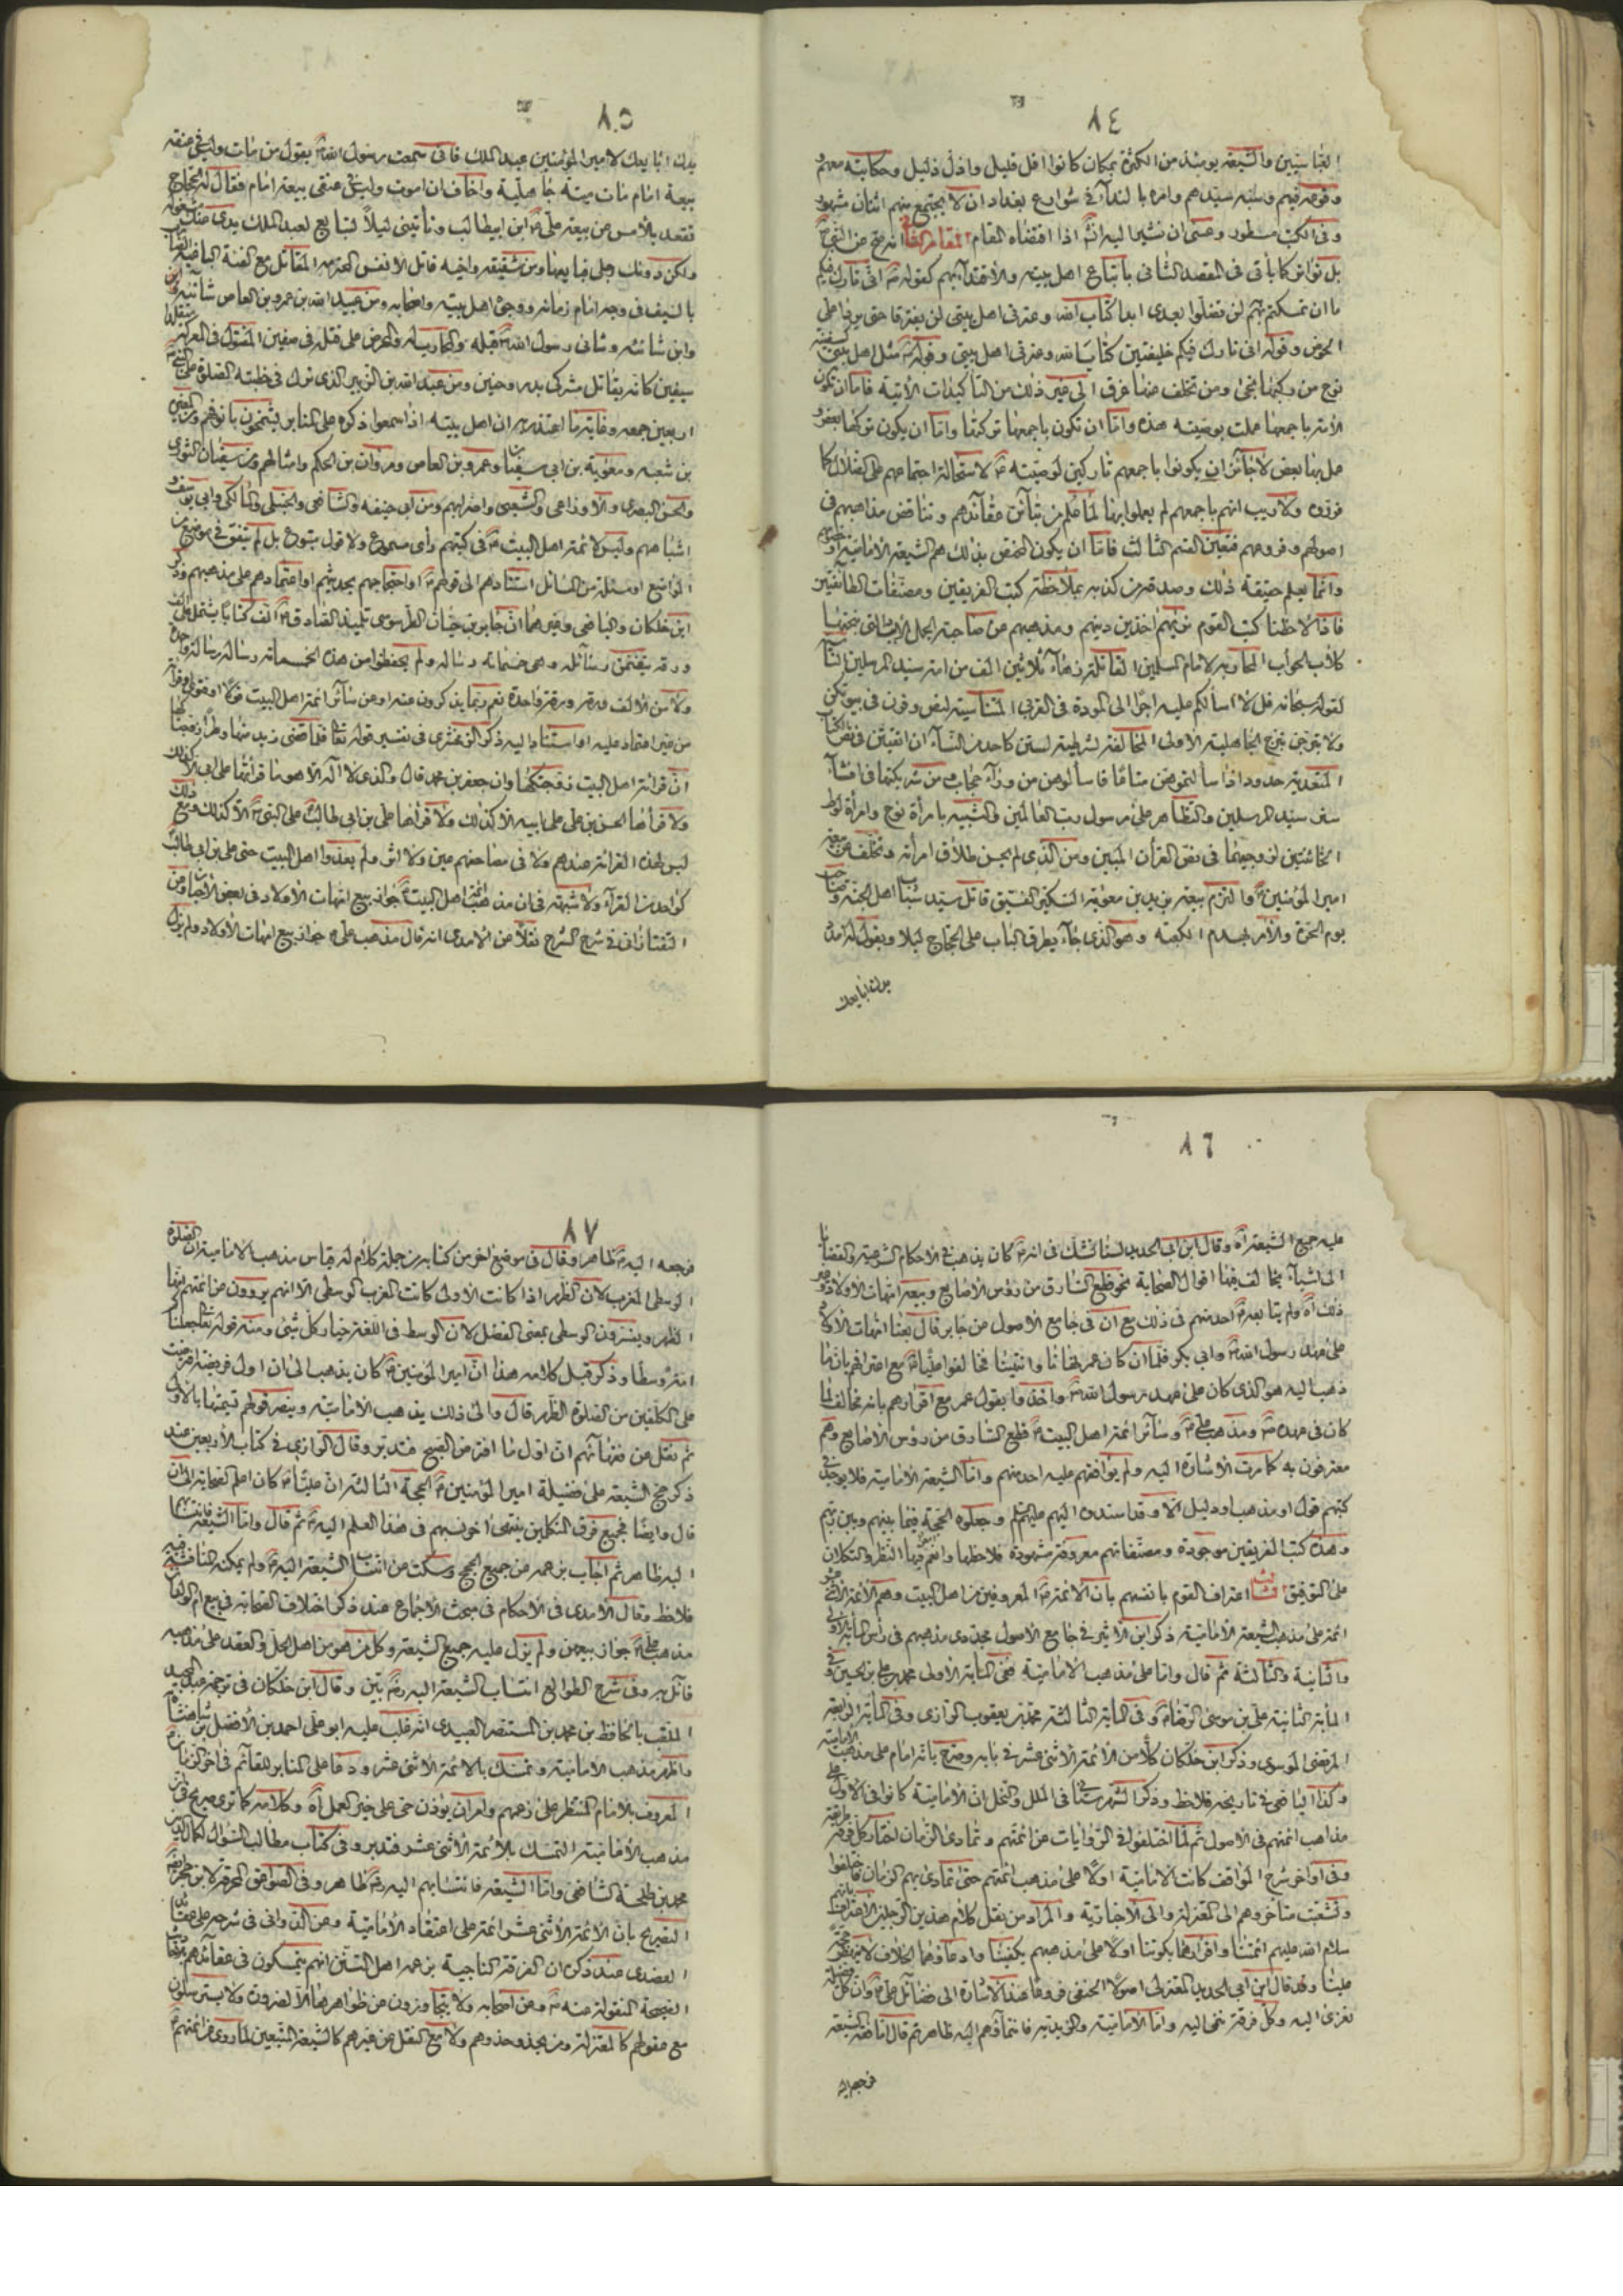 ٨٤
العباسيين والشيعة يومئذ من الكثرة بمكان كانوا اقل قليل واذل ذليل وحكايته معهم
وقوعه فيهم وسبه سيدهم وامره بالنداء في شوارع بغداد ان لا يجتمع منهم اثنان مشهور
وفي الكتب مسطور وعسى ان نشير اليه انشاء اذا اقتضاه المقام المقام الثاني انه صح عن النبي
بل تواتر كما يأتي في المقصد الثاني باتباع اهل بيته والاقتداء بهم كقوله اني تارك فيكم
ما ان تمسكتم بهم لن تضلوا بعدي ابدا كتاب الله وعترتي اهل بيتي لن يفترقا حتى يردا على
الحوض وقوله اني تارك فيكم خليفتين كتاب الله وعترتي اهل بيتي وقوله مثل اهل بيتي كسفينة
نوح من ركبها نجى ومن تخلف عنها غرق الى غير ذلك من التأكيدات الآتية فاما ان تكون
الامة باجمعها عملت بوصيته هذه واما ان تكون باجمعها تركتها واما ان يكون تركها بعض و
عمل بها بعض لا جائز ان يكونوا باجمعهم تاركين لوصيته لاستحالة اجتماعهم على الضلال كما
قرروه ولا ريب انهم باجمعهم لم يعملوا بها لما علم من تباين عقائدهم وتناقض مذاهبهم في
اصولهم وفروعهم فتعين القسم الثالث فاما ان يكون المختص بذلك هم الشيعة الامامية او غيرهم
وانما يعلم حقيقة ذلك وصدقه من كذبه بملاحظة كتب الفريقين ومصنفات الطائفتين
فاذا لاحظنا كتب القوم نريهم آخذين دينهم ومذهبهم من صاحبة الجمل الادبب التي نبحتها
كلاب الحوأب المحاربة لامام المسلمين القاتلة زهاء ثلاثين الف من امة سيد المرسلين
لقوله سبحانه قل لا اسألكم عليه اجرا الا المودة في القربى المتناسية لنص وقرن في بيوتكن
ولا تبرجن تبرج الجاهلية الاولى المخالفة لشرطية لستن كاحد من النساء ان اتقيتن في نص الكتاب
المتعدية حدود اذا سالتموهن متاعا فاسالوهن من وراء حجاب من شريكتها في افشاء
سر سيد المرسلين والتظاهر على رسول رب العالمين والشبيه بامرأة نوح وامرأة لوط
الخائنتين لزوجيهما في نص القرآن المبين ومن الذي لم يحسن طلاق امرأته وتخلف عن بيعة
امير المؤمنين والتزم بيعة يزيد بن معوية السكير الفسيق قاتل سيد شباب اهل الجنة
يوم الحرة والآمر بهدم الكعبة وهو الذي جاء يطرق الباب على الحجاج ليلا ويقول له امدد
يدك ابايعك
٨٥
يدك ابايعك لامير المؤمنين عبد الملك فاني سمعت رسول الله يقول من مات وليس في عنقه
بيعة امام مات ميتة جاهلية واخاف ان اموت وليس في عنقي بيعة امام فقال له الحجاج
تقعد بالامس عن بيعة علي ابن ابيطالب وتأتيني ليلا لتبايع لعبد الملك يدي عنك مشغولة
ولكن دونك رجلي فبايعها ومن شقيقه واخيه قاتل الانفس المحترمة المقاتل مع الفئة الباغية
بالسيف في وجه امام زمانه ووجوه اهل بيته واصحابه ومن عبيد الله بن عمرو بن العاص شانئه
وابن شانئه وشاني رسول الله قبله والمحارب له والمحرض على قتله في صفين المتقول في المعركة
سيفين كانه يقاتل مشركي بدر وحنين ومن عبد الله بن الزبير الذي ترك في خطبته الصلوة على النبي
اربعين جمعة وغاية ما اعتذر به ان اهل بيته اذا سمعوا ذكره على المنابر يشمخون بانوفهم ومن المغيرة
بن شعبه ومعوية بن ابي سفيان وعمرو بن العاص ومروان بن الحكم وامثالهم ومن سفيان الثوري
والحسن البصري والاوزاعي والشعبي واضرابهم ومن ابي حنيفه والشافعي والحنبلي والمالكي وابي يوسف و
اشباههم وليس لائمة اهل البيت في كتبهم رأى مسموع ولا قول متبوع بل لم يتفق في موضع من
المواضع او مسئلة من المسائل استنادهم الى قولهم او احتجاجهم بحديثهم او اعتمادهم على مذهبهم وذكر
ابن خلكان واليافعي وغيرهما ان جابر بن حيان الطرسوسي تلميذ الصادق الف كتابا يشتمل على الف
ورقة يتضمن رسائله وهي خمسمائة رسالة ولم يحفظوا من هذه الخمسمائة رسالة رسالة واحدة
ولا من الالف ورقة ورقة واحدة نعم ربما يذكرون عنه او عن سائر ائمة اهل البيت قولا او فتوى
من غير اعتماد عليه او استناد اليه ذكر الزمخشري في تفسير قوله تعالى فلما قضى زيد منها وطرا زوجناكها
ان قرائة اهل البيت زوجتكها وان جعفر بن محمد قال والذي لا اله الا هو ما قرأتها على ابي الا كذلك
ولا قرأها الحسن بن علي على ابيه الا كذلك ولا قرأها علي بن ابي طالب على النبي الا كذلك ومع ذلك
ليس لهذه القرائة عندهم ولا في مصاحفهم عين ولا اثر ولم يعدوا اهل البيت حتى علي بن ابي طالب
كواحد من القراء ولا شبهة في ان مذهب ائمة اهل البيت جواز بيع امهات الاولاد في بعض الاحيان
التفتازاني في شرح الشرح نقلا من الآمدي انه قال مذهب علي جواز بيع امهات الاولاد ولم يزل
٨٦
عليه جميع الشيعة آه وقال ابن ابي الحديد لسنا نشك في انه كان يذهب في الاحكام الشرعية والقضايا
الى اشياء يخالف فيها اقوال الصحابة نحو قطع السارق من رؤس الاصابع وبيعه امهات الاولاد وغير
ذلك آه ولم يتابعه احد منهم في ذلك مع ان في جامع الاصول عن جابر قال بعنا امهات الاولاد
على عهد رسول الله وابي بكر فلما ان كان عمر نهانا وانتهينا فخالفوا عليا مع اعترافهم بان ما
ذهب اليه هو الذي كان على عهد رسول الله واخذوا بقول عمر مع اقرارهم بانه مخالف لما
كان في عهده ومذهب علي وسائر ائمة اهل البيت قطع السارق من رؤس الاصابع وهم
معترفون به كما مرت الاشارة اليه ولم يوافقهم عليه احد منهم واما الشيعة الامامية فلا يوجد في
كتبهم قول او مذهب او دليل الا وقد اسندوه اليهم عليهم السلام وجعلوه الحجة فيما بينهم وبين ربهم
وهذه كتب الفريقين موجودة ومصنفاتهم معروفة مشهودة فلاحظها وانعم فيها النظر والتكلان
على التوفيق الثالث اعتراف القوم بانفسهم بان الائمة المعروفين من اهل البيت وهم الائمة الاثنى عشر
ائمة على مذهب الشيعة الامامية ذكر ابن الاثير في جامع الاصول مجددي مذهبهم في رأس المأة الاولى
والثانية والثالثة ثم قال واما على مذهب الامامية ففي المأة الاولى محمد بن علي بن الحسين وفي
المأة الثانية علي بن موسى الرضا وفي المأة الثالثة محمد بن يعقوب الرازي وفي المأة الرابعة
المرتضى الموسوي وذكر ابن خلكان كلا من الائمة الاثنى عشر في بابه وصرح بانه امام على مذهب الامامية
وكذا اليافعي في تاريخه فلاحظ وذكر الشهرستاني في الملل والنحل ان الامامية كانوا في الاول على
مذاهب ائمتهم في الاصول ثم لما اختلفوا في الروايات عن ائمتهم وتمادى الزمان اختار كل فرقة طريقة
وفي اواخر شرح المواقف كانت الامامية اولا على مذهب ائمتهم حتى تمادى بهم الزمان فاختلفوا
وتشعبت متأخروهم الى المعتزلة والى الاخبارية والمراد من نقل كلام هذين الرجلين الاعتراف بانهم
سلام الله عليهم ائمتنا واقرارهما بكوننا اولا على مذهبهم يكفينا وادعاؤهما الخلاف لا يثبت حجة
علينا وقد قال ابن ابي الحديد المعتزلي اصولا الحنفي فروعا عند الاشارة الى فضائل علي وان كل فضيلة
تعزى اليه وكل فرقة تنتمى اليه واما الامامية والزيدية فانتماؤهم اليه ظاهر ثم قال اما فقه الشيعة
فرجعه اليه
٨٧
فرجعه اليه ظاهر وقال في موضع آخر من كتابه من جملة كلام له قياس مذهب الامامية ان الصلوة
الوسطى المغرب لان الظهر اذا كانت الاولى كانت المغرب الوسطى الا انهم يروون عن ائمتهم انها
الظهر ويفسرون الوسطى بمعنى الفضلى لان الوسط في اللغة خيار كل شيء ومنه قوله تعالى جعلناكم
امة وسطا وذكر قبل كلامه هذا ان امير المؤمنين كان يذهب الى ان اول فريضة افترضت
على المكلفين من الصلوة الظهر قال والى ذلك يذهب الامامية وينصر قولهم تسميتها بالاولى
ثم نقل عن فقهائهم ان اول ما افترض الصبح فتدبر وقال الرازي في كتاب الاربعين عند
ذكر حجج الشيعة على فضيلة امير المؤمنين الحجة الثالثة ان عليا كان اعلم الصحابة الى ان
قال وايضا فجميع فرق المتكلمين ينتهى آخر نسبهم في هذا العلم اليه ثم قال واما الشيعة فانتسابهم
اليه ظاهر ثم اجاب بزعمه عن جميع الحجج وسكت عن انتساب الشيعة اليه ولم يمكنه المناقشة فيه
فلاحظ وقال الآمدي في الاحكام في مبحث الاجماع عند ذكر اختلاف الصحابة في بيع ام الولد
مذهب علي جواز بيعهن ولم يزل عليه جميع الشيعة وكل من هو من اهل الحل والعقد على مذهبه
قائل به وفي شرح الطوالع انتساب الشيعة اليه بين وقال ابن خلكان في ترجمة عبد المجيد
الملقب بالحافظ بن محمد بن المستنصر العبيدي انه غلب عليه ابو علي احمد بن الافضل بن شاهنشاه
واظهر مذهب الامامية وتمسك بالائمة الاثنى عشر ودعا على المنابر للقائم في آخر الزمان
المعروف بالامام المنتظر على زعمهم وامر ان يؤذن حي على خير العمل آه وكلامه كما ترى صريح في ان
مذهب الامامية التمسك بالائمة الاثنى عشر فتدبر وفي كتاب مطالب السؤل لكمال الدين
محمد بن طلحة الشافعي واما الشيعة فانتسابهم اليه ظاهر وفي الصواعق المحرقة لابن حجر
التصريح بان الائمة الاثنى عشر ائمة على اعتقاد الامامية وعن الدواني في شرحه على عقايد
العضدي عند ذكر ان الفرقة الناجية بزعمه اهل التسنن انهم يتمسكون في عقائدهم بالاحاديث
الصحيحة المنقولة عنه وعن اصحابه ولا يتجاوزون عن ظواهرها الا لضرورة ولا يسترسلون
مع عقولهم كالمعتزلة ومن يحذو حذوهم ولا مع النقل عن غيرهم كالشيعة المتبعين لما روي عن ائمتهم